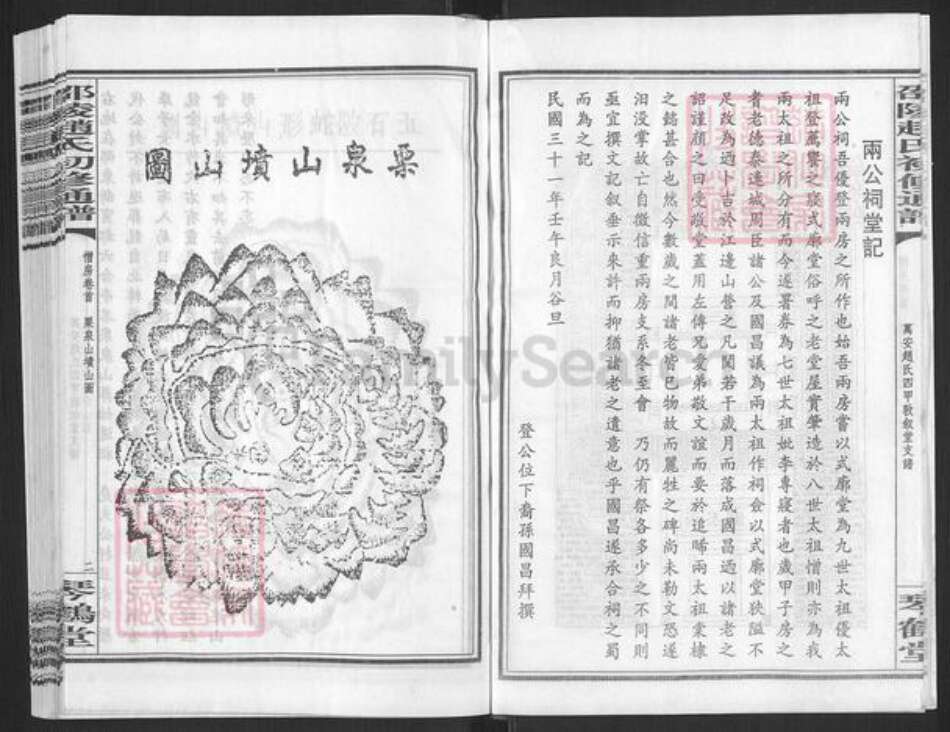 兩公祠堂記
兩公祠吾優登兩房之所作也始吾兩房嘗以式廓堂為九世太祖優太
祖登萬饗之寢式廓堂俗呼之老堂屋實肇造於八世太祖惜則亦為我
兩太祖之所分有而今遂署券為七世太祖妣李專寢者也歲甲子房之
者老德泰連城周臣諸公及國昌議為兩太祖作祠僉以式廓堂狹隘不
足改為迺卜吉於江邊山營之凡閱若干歲月而落成國昌迺以諸老之
詔謹顏之曰受敬堂蓋用左傳兄愛弟敬文誼而要於追晞兩太祖棠棣
之懿甚合也然今數歲之間諸老皆已物故而麗牲之碑尚未勒文恐遂
汨沒掌故亡自徵信重兩房支系冬至會 乃仍有祭各多少之不同則
亟宜撰文記叙垂示來許而抑猶諸老之遺意也乎國昌遂承合祠之蜀
而為之記
民國三十一年壬午良月谷旦
登公位下裔孫國昌拜撰
萬安趙氏四甲敦叙堂支譜
琴鶴堂
邵陵趙氏初修通譜
栗泉山墳山圖
惜房卷首
栗泉山墳山圖
二
琴鶴堂
FamilySearch